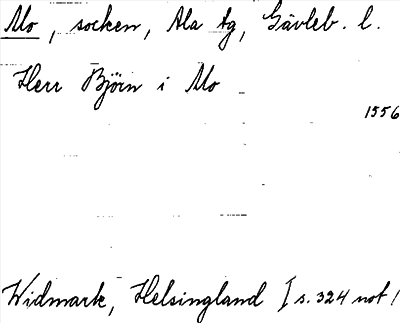 Mo, socken, Ala tg, Gävleb. l.
Herr Björn i Mo
1556
Widmark, Helsingland I s. 324 not 1